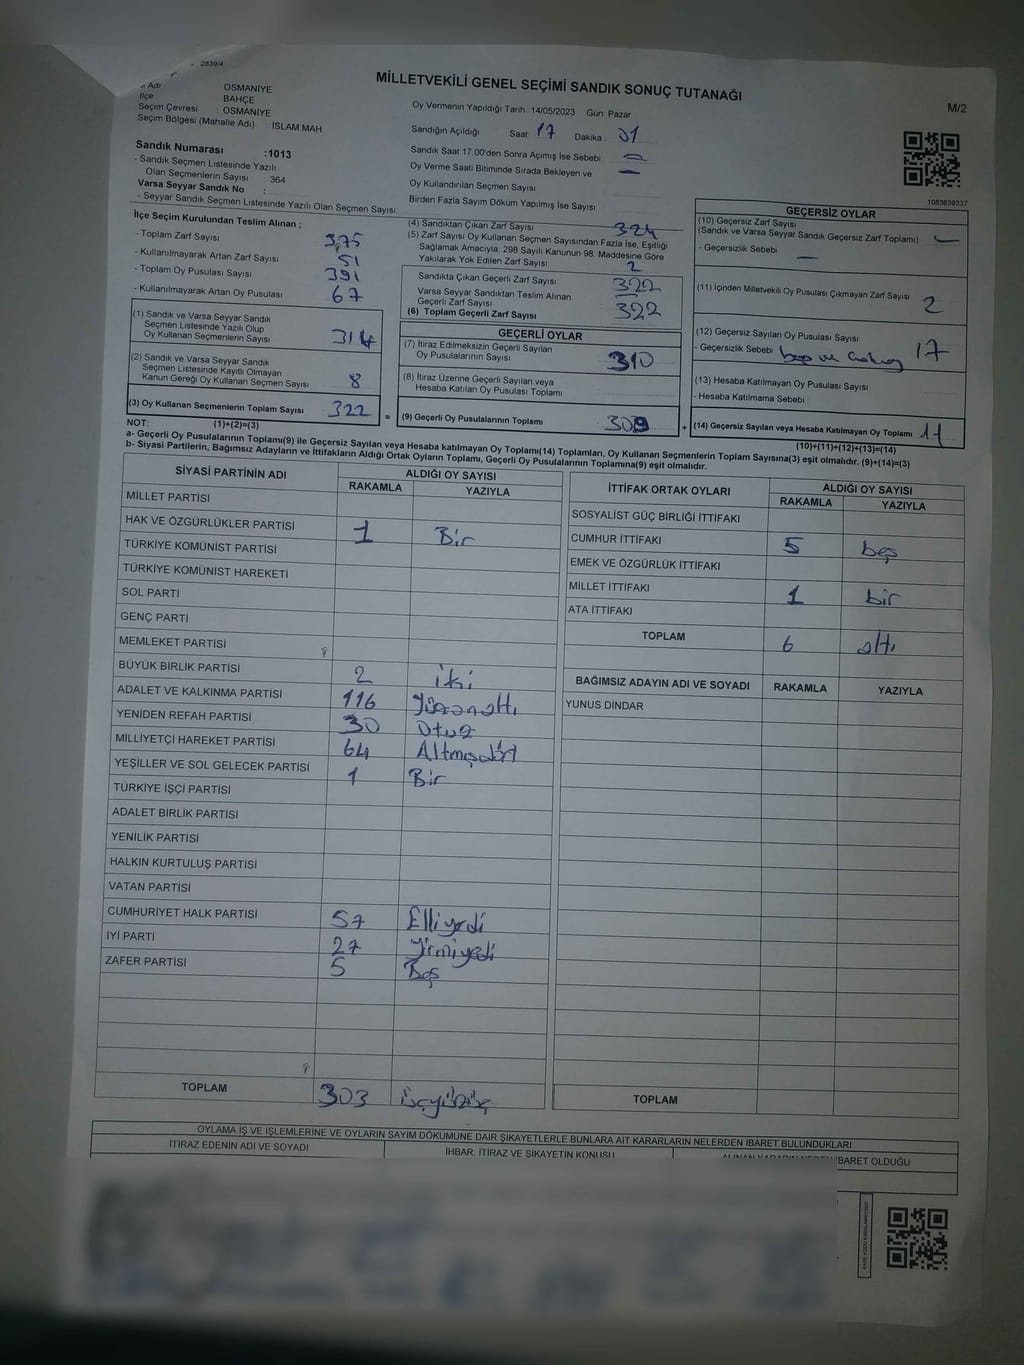 2839/4
MİLLETVEKİLİ GENEL SEÇİMİ SANDIK SONUÇ TUTANAĞI
M/2
İl Adı OSMANİYE
İlçe BAHÇE
Seçim Çevresi OSMANİYE
Seçim Bölgesi (Mahalle Adı) İSLAM MAH
Oy Vermenin Yapıldığı Tarih : 14/05/2023 Gün: Pazar
Sandığın Açıldığı Saat 17 Dakika : 01
Sandık Saat 17:00'den Sonra Açımış İse Sebebi —
Oy Verme Saati Bitiminde Sırada Bekleyen ve —
Oy Kullandırılan Seçmen Sayısı
Birden Fazla Sayım Döküm Yapılmış İse Sayısı
Sandık Numarası :1013
- Sandık Seçmen Listesinde Yazılı
Olan Seçmenlerin Sayısı : 364
Varsa Seyyar Sandık No :
- Seyyar Sandık Seçmen Listesinde Yazılı Olan Seçmen Sayısı
1083639337
İlçe Seçim Kurulundan Teslim Alınan ;
- Toplam Zarf Sayısı 375
- Kullanılmayarak Artan Zarf Sayısı 51
- Toplam Oy Pusulası Sayısı 391
- Kullanılmayarak Artan Oy Pusulası 67
(1) Sandık ve Varsa Seyyar Sandık
Seçmen Listesinde Yazılı Olup
Oy Kullanan Seçmenlerin Sayısı 314
(2) Sandık ve Varsa Seyyar Sandık
Seçmen Listesinde Kayıtlı Olmayan
Kanun Gereği Oy Kullanan Seçmen Sayısı 8
(3) Oy Kullanan Seçmenlerin Toplam Sayısı 322 =
(1)+(2)=(3)
(4) Sandıktan Çıkan Zarf Sayısı 324
(5) Zarf Sayısı Oy Kullanan Seçmen Sayısından Fazla İse, Eşitliği
Sağlamak Amacıyla, 298 Sayılı Kanunun 98. Maddesine Göre
Yakılarak Yok Edilen Zarf Sayısı 2
Sandıkta Çıkan Geçerli Zarf Sayısı 322
Varsa Seyyar Sandıktan Teslim Alınan
Geçerli Zarf Sayısı
(6) Toplam Geçerli Zarf Sayısı 322
GEÇERLİ OYLAR
(7) İtiraz Edilmeksizin Geçerli Sayılan
Oy Pusulalarının Sayısı 310
(8) İtiraz Üzerine Geçerli Sayılan veya
Hesaba Katılan Oy Pusulası Toplamı
(9) Geçerli Oy Pusulalarının Toplamı 309 +
GEÇERSİZ OYLAR
(10) Geçersiz Zarf Sayısı
(Sandık ve Varsa Seyyar Sandık Geçersiz Zarf Toplamı) —
- Geçersizlik Sebebi —
(11) İçinden Milletvekili Oy Pusulası Çıkmayan Zarf Sayısı 2
(12) Geçersiz Sayılan Oy Pusulası Sayısı
- Geçersizlik Sebebi 17
(13) Hesaba Katılmayan Oy Pusulası Sayısı
- Hesaba Katılmama Sebebi
(14) Geçersiz Sayılan veya Hesaba Katılmayan Oy Toplamı
(10)+(11)+(12)+(13)=(14)
NOT:
a- Geçerli Oy Pusulalarının Toplamı(9) ile Geçersiz Sayılan veya Hesaba katılmayan Oy Toplamı(14) Toplamları, Oy Kullanan Seçmenlerin Toplam Sayısına(3) eşit olmalıdır. (9)+(14)=(3)
b- Siyasi Partilerin, Bağımsız Adayların ve İttifakların Aldığı Ortak Oyların Toplamı, Geçerli Oy Pusulalarının Toplamına(9) eşit olmalıdır.
SİYASİ PARTİNİN ADI ALDIĞI OY SAYISI
RAKAMLA YAZIYLA
MİLLET PARTİSİ
HAK VE ÖZGÜRLÜKLER PARTİSİ 1 Bir
TÜRKİYE KOMÜNİST PARTİSİ
TÜRKİYE KOMÜNİST HAREKETİ
SOL PARTİ
GENÇ PARTİ
MEMLEKET PARTİSİ
BÜYÜK BİRLİK PARTİSİ 2 iki
ADALET VE KALKINMA PARTİSİ 116 Yüzonaltı
YENİDEN REFAH PARTİSİ 30 Otuz
MİLLİYETÇİ HAREKET PARTİSİ 64 Altmışdört
YEŞİLLER VE SOL GELECEK PARTİSİ 1 Bir
TÜRKİYE İŞÇİ PARTİSİ
ADALET BİRLİK PARTİSİ
YENİLİK PARTİSİ
HALKIN KURTULUŞ PARTİSİ
VATAN PARTİSİ
CUMHURİYET HALK PARTİSİ 57 Elliyedi
İYİ PARTİ 27 Yirmiyedi
ZAFER PARTİSİ 5 Beş
TOPLAM 303 üçyüzüç
İTTİFAK ORTAK OYLARI ALDIĞI OY SAYISI
RAKAMLA YAZIYLA
SOSYALİST GÜÇ BİRLİĞİ İTTİFAKI
CUMHUR İTTİFAKI 5 beş
EMEK VE ÖZGÜRLÜK İTTİFAKI
MİLLET İTTİFAKI 1 bir
ATA İTTİFAKI
TOPLAM 6 altı
BAĞIMSIZ ADAYIN ADI VE SOYADI RAKAMLA YAZIYLA
YUNUS DİNDAR
TOPLAM
OYLAMA İŞ VE İŞLEMLERİNE VE OYLARIN SAYIM DÖKÜMÜNE DAİR ŞİKAYETLERLE BUNLARA AİT KARARLARIN NELERDEN İBARET BULUNDUKLARI
İTİRAZ EDENİN ADI VE SOYADI İHBAR, İTİRAZ VE ŞİKAYETİN KONUSU ALINAN KARARIN NEDEN İBARET OLDUĞU